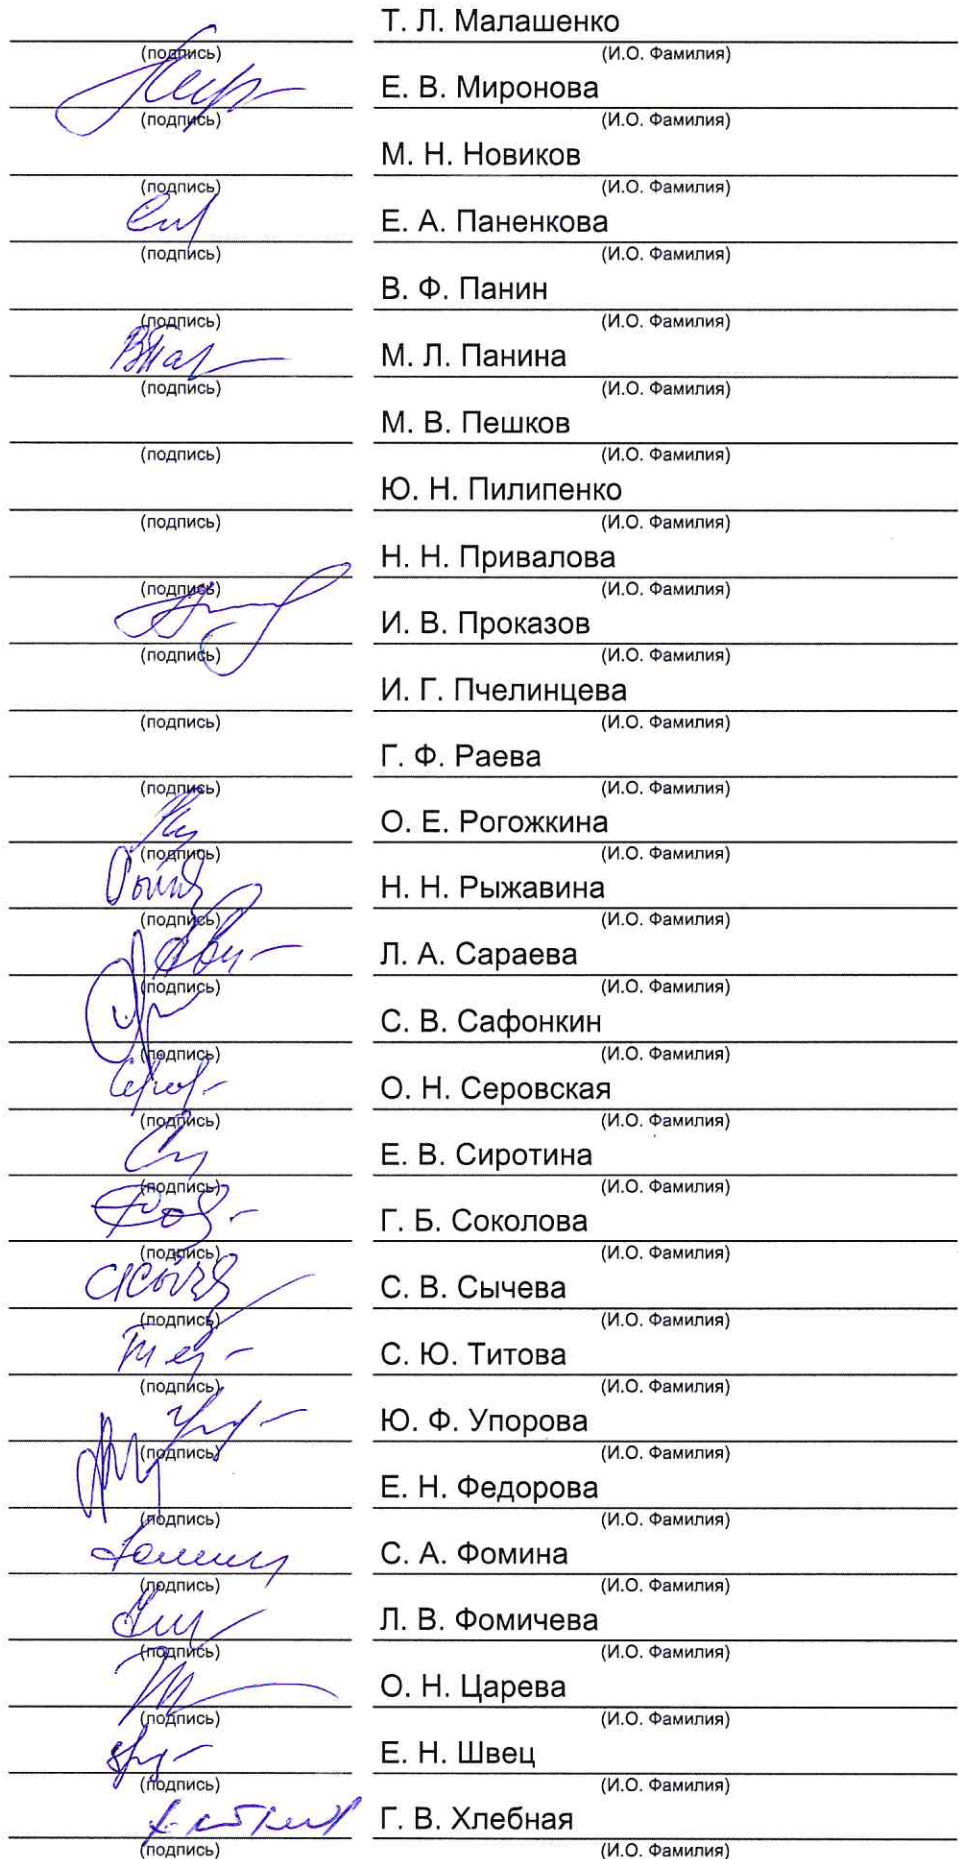 Т. Л. Малашенко
(подпись) (И.О. Фамилия)
Е. В. Миронова
(подпись) (И.О. Фамилия)
М. Н. Новиков
(подпись) (И.О. Фамилия)
Е. А. Паненкова
(подпись) (И.О. Фамилия)
В. Ф. Панин
(подпись) (И.О. Фамилия)
М. Л. Панина
(подпись) (И.О. Фамилия)
М. В. Пешков
(подпись) (И.О. Фамилия)
Ю. Н. Пилипенко
(подпись) (И.О. Фамилия)
Н. Н. Привалова
(подпись) (И.О. Фамилия)
И. В. Проказов
(подпись) (И.О. Фамилия)
И. Г. Пчелинцева
(подпись) (И.О. Фамилия)
Г. Ф. Раева
(подпись) (И.О. Фамилия)
О. Е. Рогожкина
(подпись) (И.О. Фамилия)
Н. Н. Рыжавина
(подпись) (И.О. Фамилия)
Л. А. Сараева
(подпись) (И.О. Фамилия)
С. В. Сафонкин
(подпись) (И.О. Фамилия)
О. Н. Серовская
(подпись) (И.О. Фамилия)
Е. В. Сиротина
(подпись) (И.О. Фамилия)
Г. Б. Соколова
(подпись) (И.О. Фамилия)
С. В. Сычева
(подпись) (И.О. Фамилия)
С. Ю. Титова
(подпись) (И.О. Фамилия)
Ю. Ф. Упорова
(подпись) (И.О. Фамилия)
Е. Н. Федорова
(подпись) (И.О. Фамилия)
С. А. Фомина
(подпись) (И.О. Фамилия)
Л. В. Фомичева
(подпись) (И.О. Фамилия)
О. Н. Царева
(подпись) (И.О. Фамилия)
Е. Н. Швец
(подпись) (И.О. Фамилия)
Г. В. Хлебная
(подпись) (И.О. Фамилия)